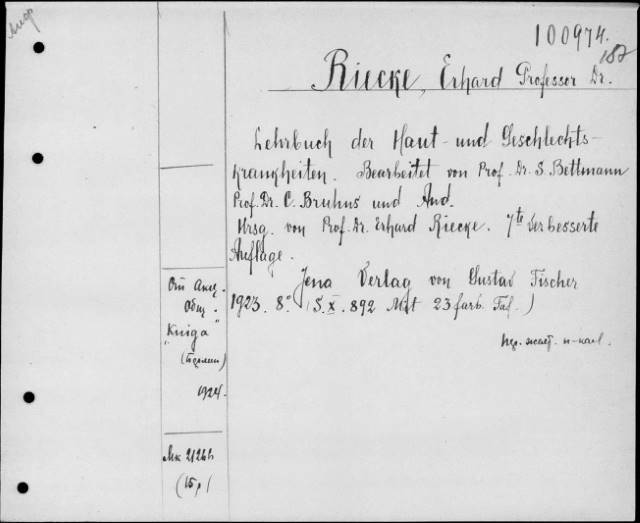 100974.
182
Riecke, Erhard Professor Dr.
Lehrbuch der Haut- und Geschlechts-
krankheiten. Bearbeitet von Prof. Dr. S. Bettmann
Prof. Dr. C. Bruhns und And.
Hrsg. von Prof. Dr. Erhard Riecke. 7te Verbesserte
Auflage.
Jena Verlag von Gustav Fischer
1923. 8° (S. X. 892 Mit 23 farb. Taf.)
От Акц.
Общ.
"Kniga"
(Берлин)
1924.